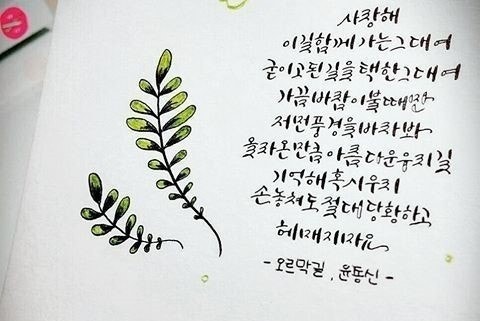 사랑해
이길함께가는그대여
굳이고된길을택한그대여
가끔바람이불때만
저먼풍경을바라봐
올라온만큼아름다운우리길
기억해혹시우리
손놓쳐도절대당황하고
헤매지마요
- 오르막길, 윤종신 -